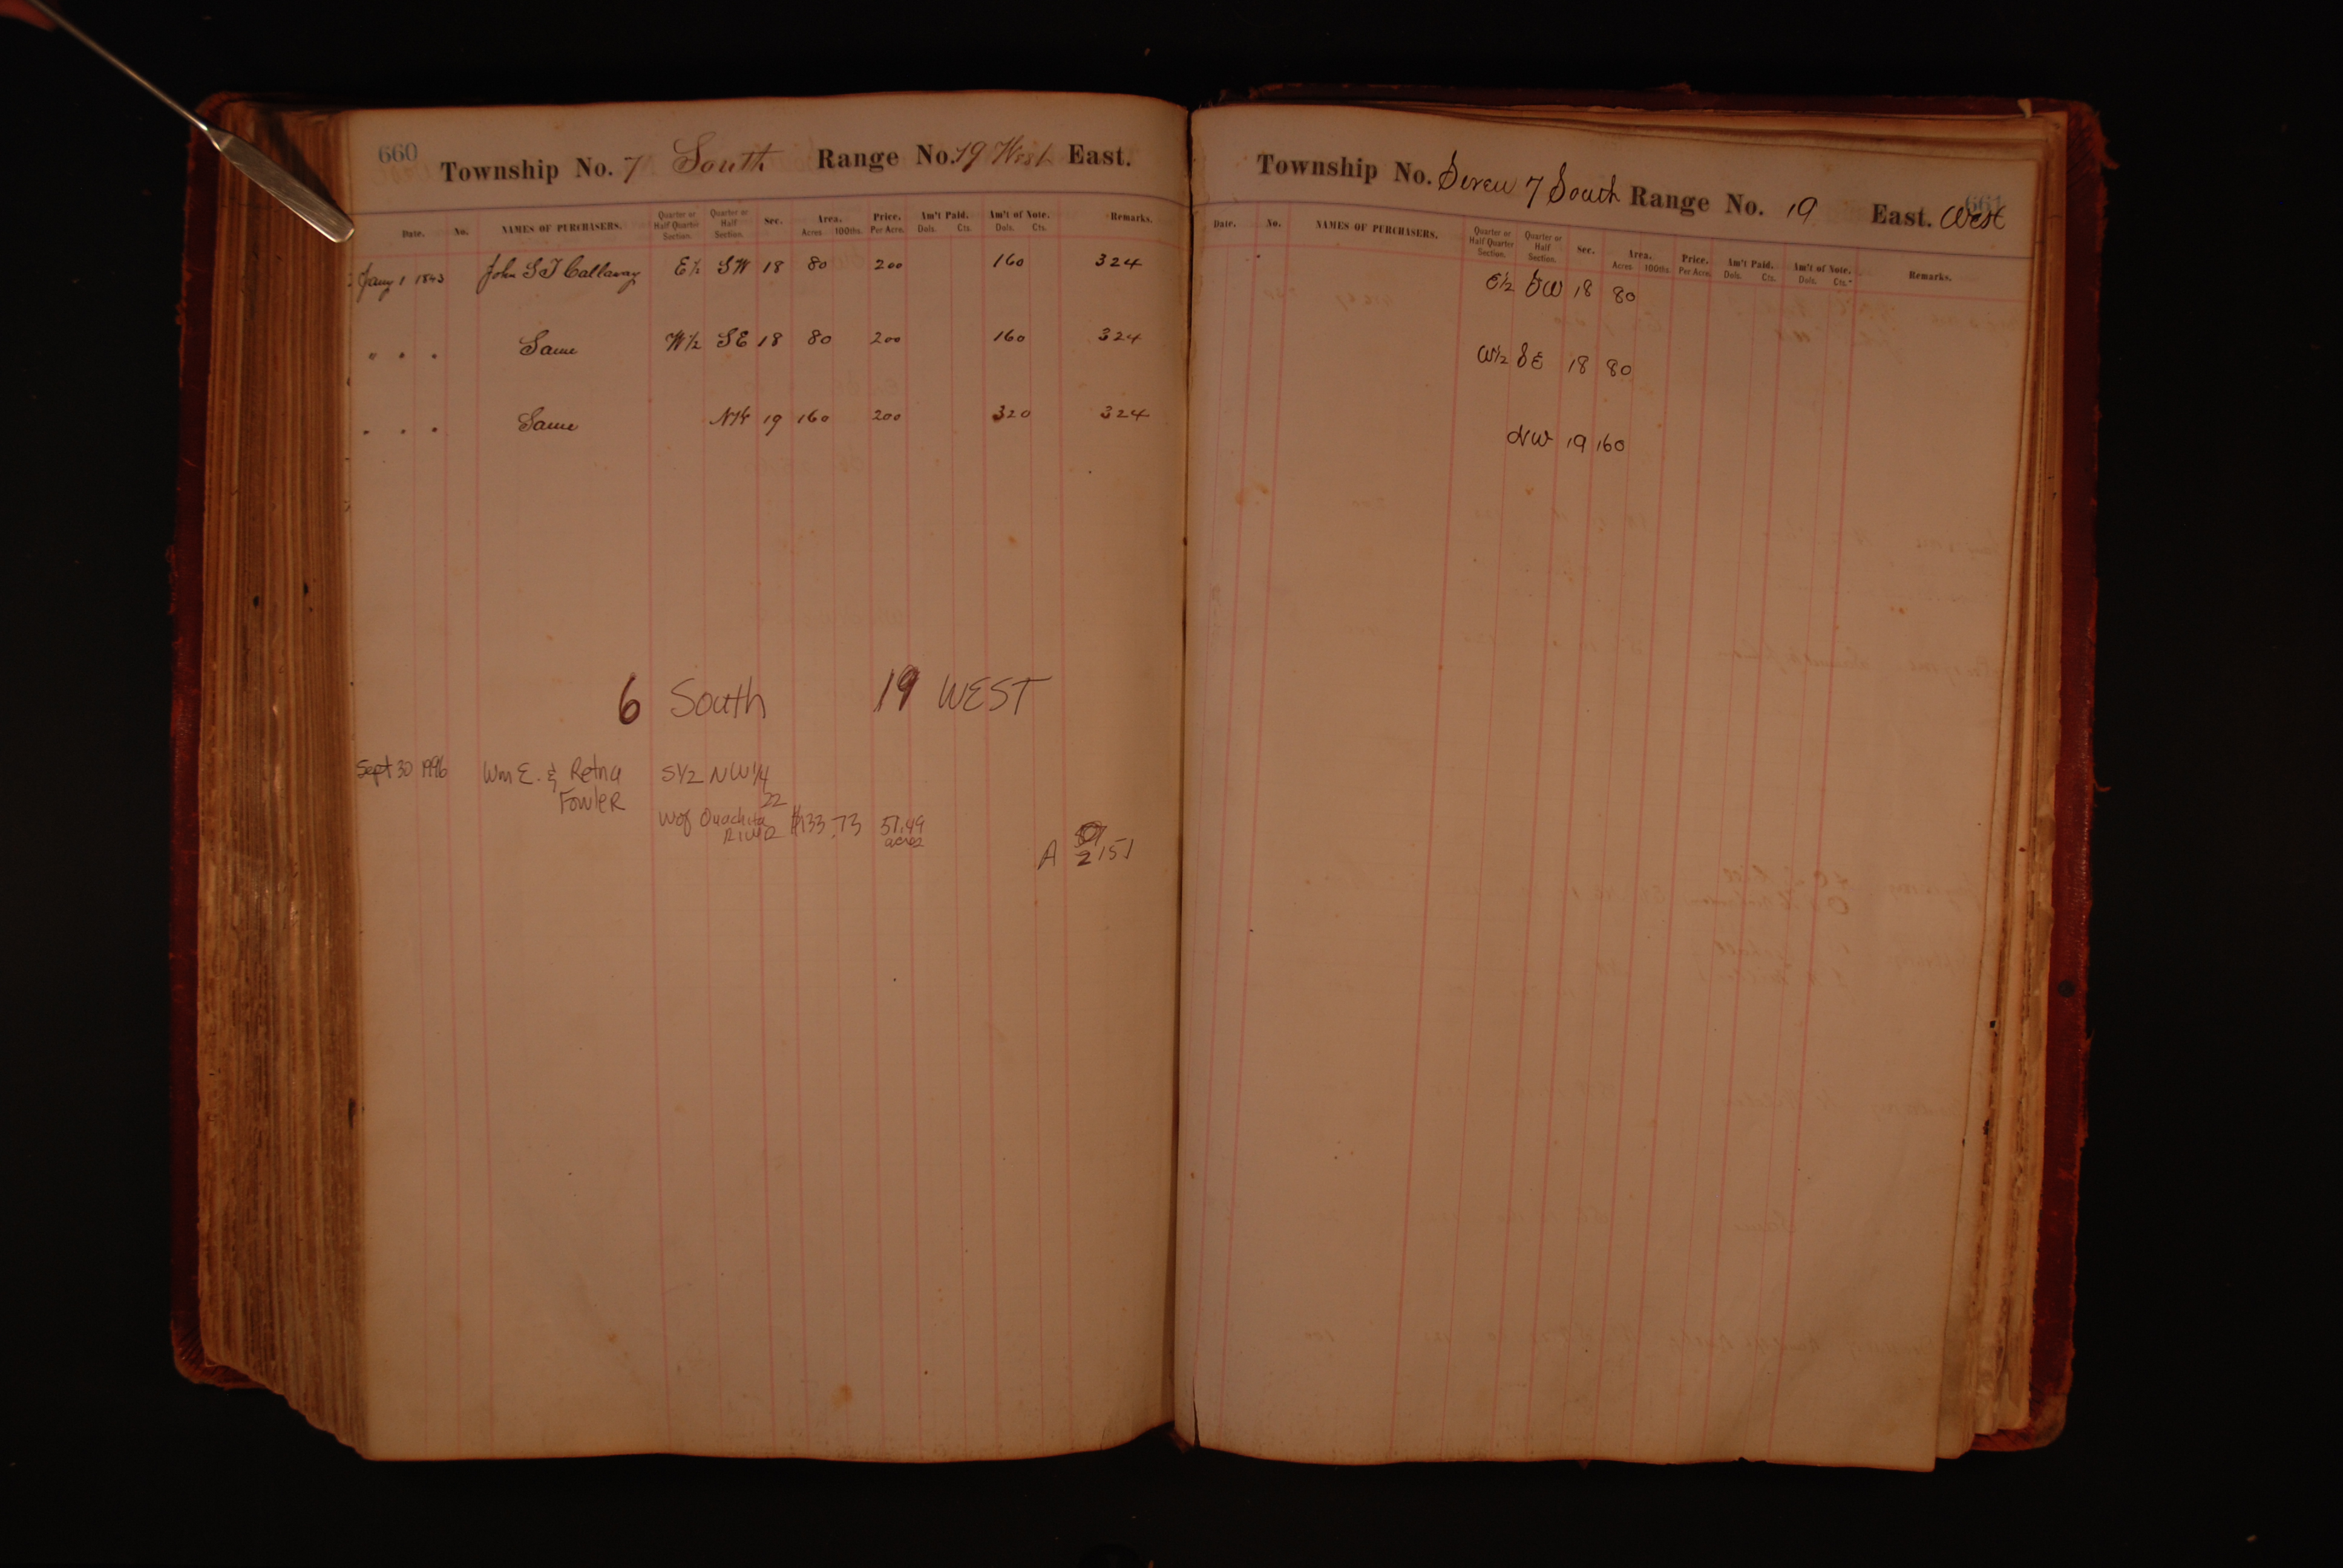 660
Township No. 7 South Range No. 19 West East.
Date. No. NAMES OF PURCHASERS. Quarter or Half Quarter Section. Quarter or Half Section. Sec. Area. Acres 100ths. Price. Per Acre. Am't Paid. Dols. Cts. Am't of Note. Dols. Cts. Remarks.
Jany 1 1843 John S T Callaway E½ SW 18 80 200 160 324
" " " Same W½ SE 18 80 200 160 324
" " " Same NW 19 160 200 320 324
6 South 19 WEST
Sept 30 1996 Wm E. & Retna S1/2 NW1/4
Fowler 22
W of Ouachita $133.73 57.49
River acres
A 2151
661
Township No. Seven 7 South Range No. 19 East. West
Date. No. NAMES OF PURCHASERS. Quarter or Half Quarter Section. Quarter or Half Section. Sec. Area. Acres 100ths. Price. Per Acre. Am't Paid. Dols. Cts. Am't of Note. Dols. Cts. Remarks.
E½ SW 18 80
W½ SE 18 80
NW 19 160